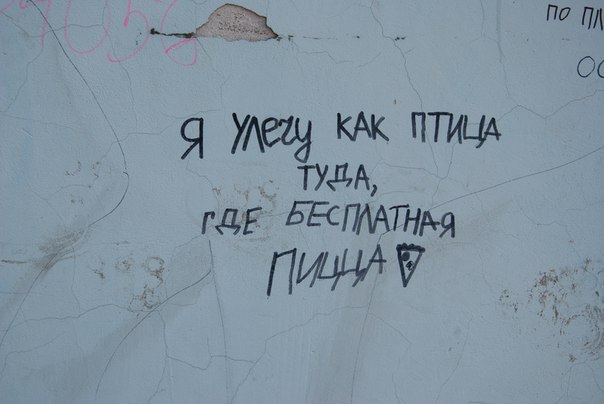 по пл
ос
Я улечу как птица
туда,
где бесплатная
пицца